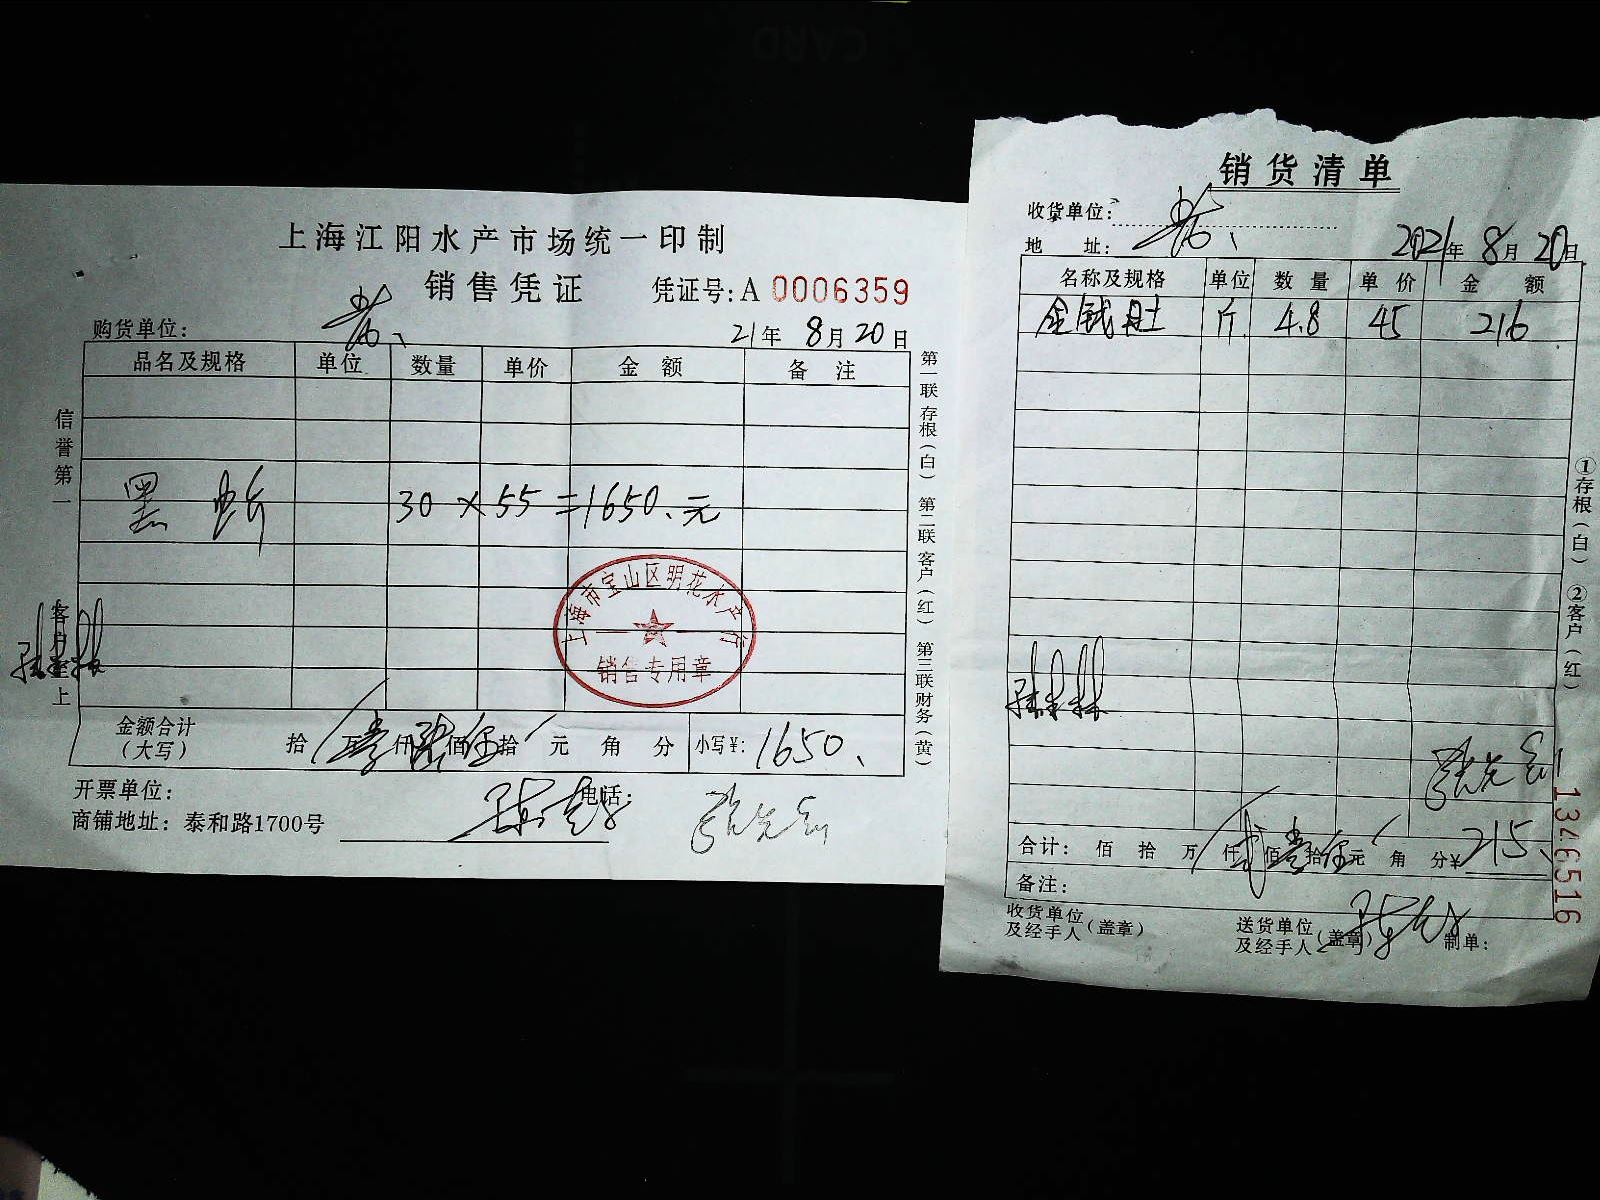 CARD
上海江阳水产市场统一印制
销售凭证 凭证号:A 0006359
购货单位:
21年 8月 20日
品名及规格 单位 数量 单价 金额 备注
黑 30 × 55 =1650、元
上海市宝山区明花水产行
销售专用章
金额合计
(大写) 拾 万 壹 仟 陆 佰 伍 拾 元 角 分 小写¥: 1650、
开票单位: 电话:
商铺地址: 泰和路1700号
信誉第一
客户至上
第一联 存根(白) 第二联 客户(红) 第三联 财务(黄)
销货清单
收货单位:
地 址: 2021年 8月 20日
名称及规格 单位 数量 单价 金额
金钱肚 斤 4.8 45 216
合计: 佰 拾 万 仟 贰 佰 壹 拾 伍 元 角 分¥ 215、
备注:
收货单位
及经手人(盖章)
送货单位
及经手人(盖章) 制单:
①存根(白) ②客户(红)
1346516